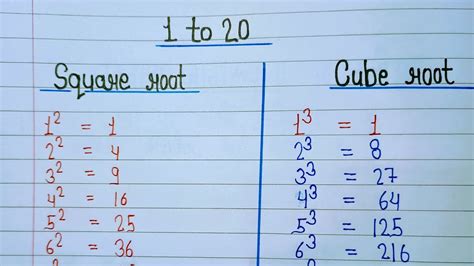 1 to 20
Square root
1² = 1
2² = 4
3² = 9
4² = 16
5² = 25
6² = 36
Cube root
1³ = 1
2³ = 8
3³ = 27
4³ = 64
5³ = 125
6³ = 216